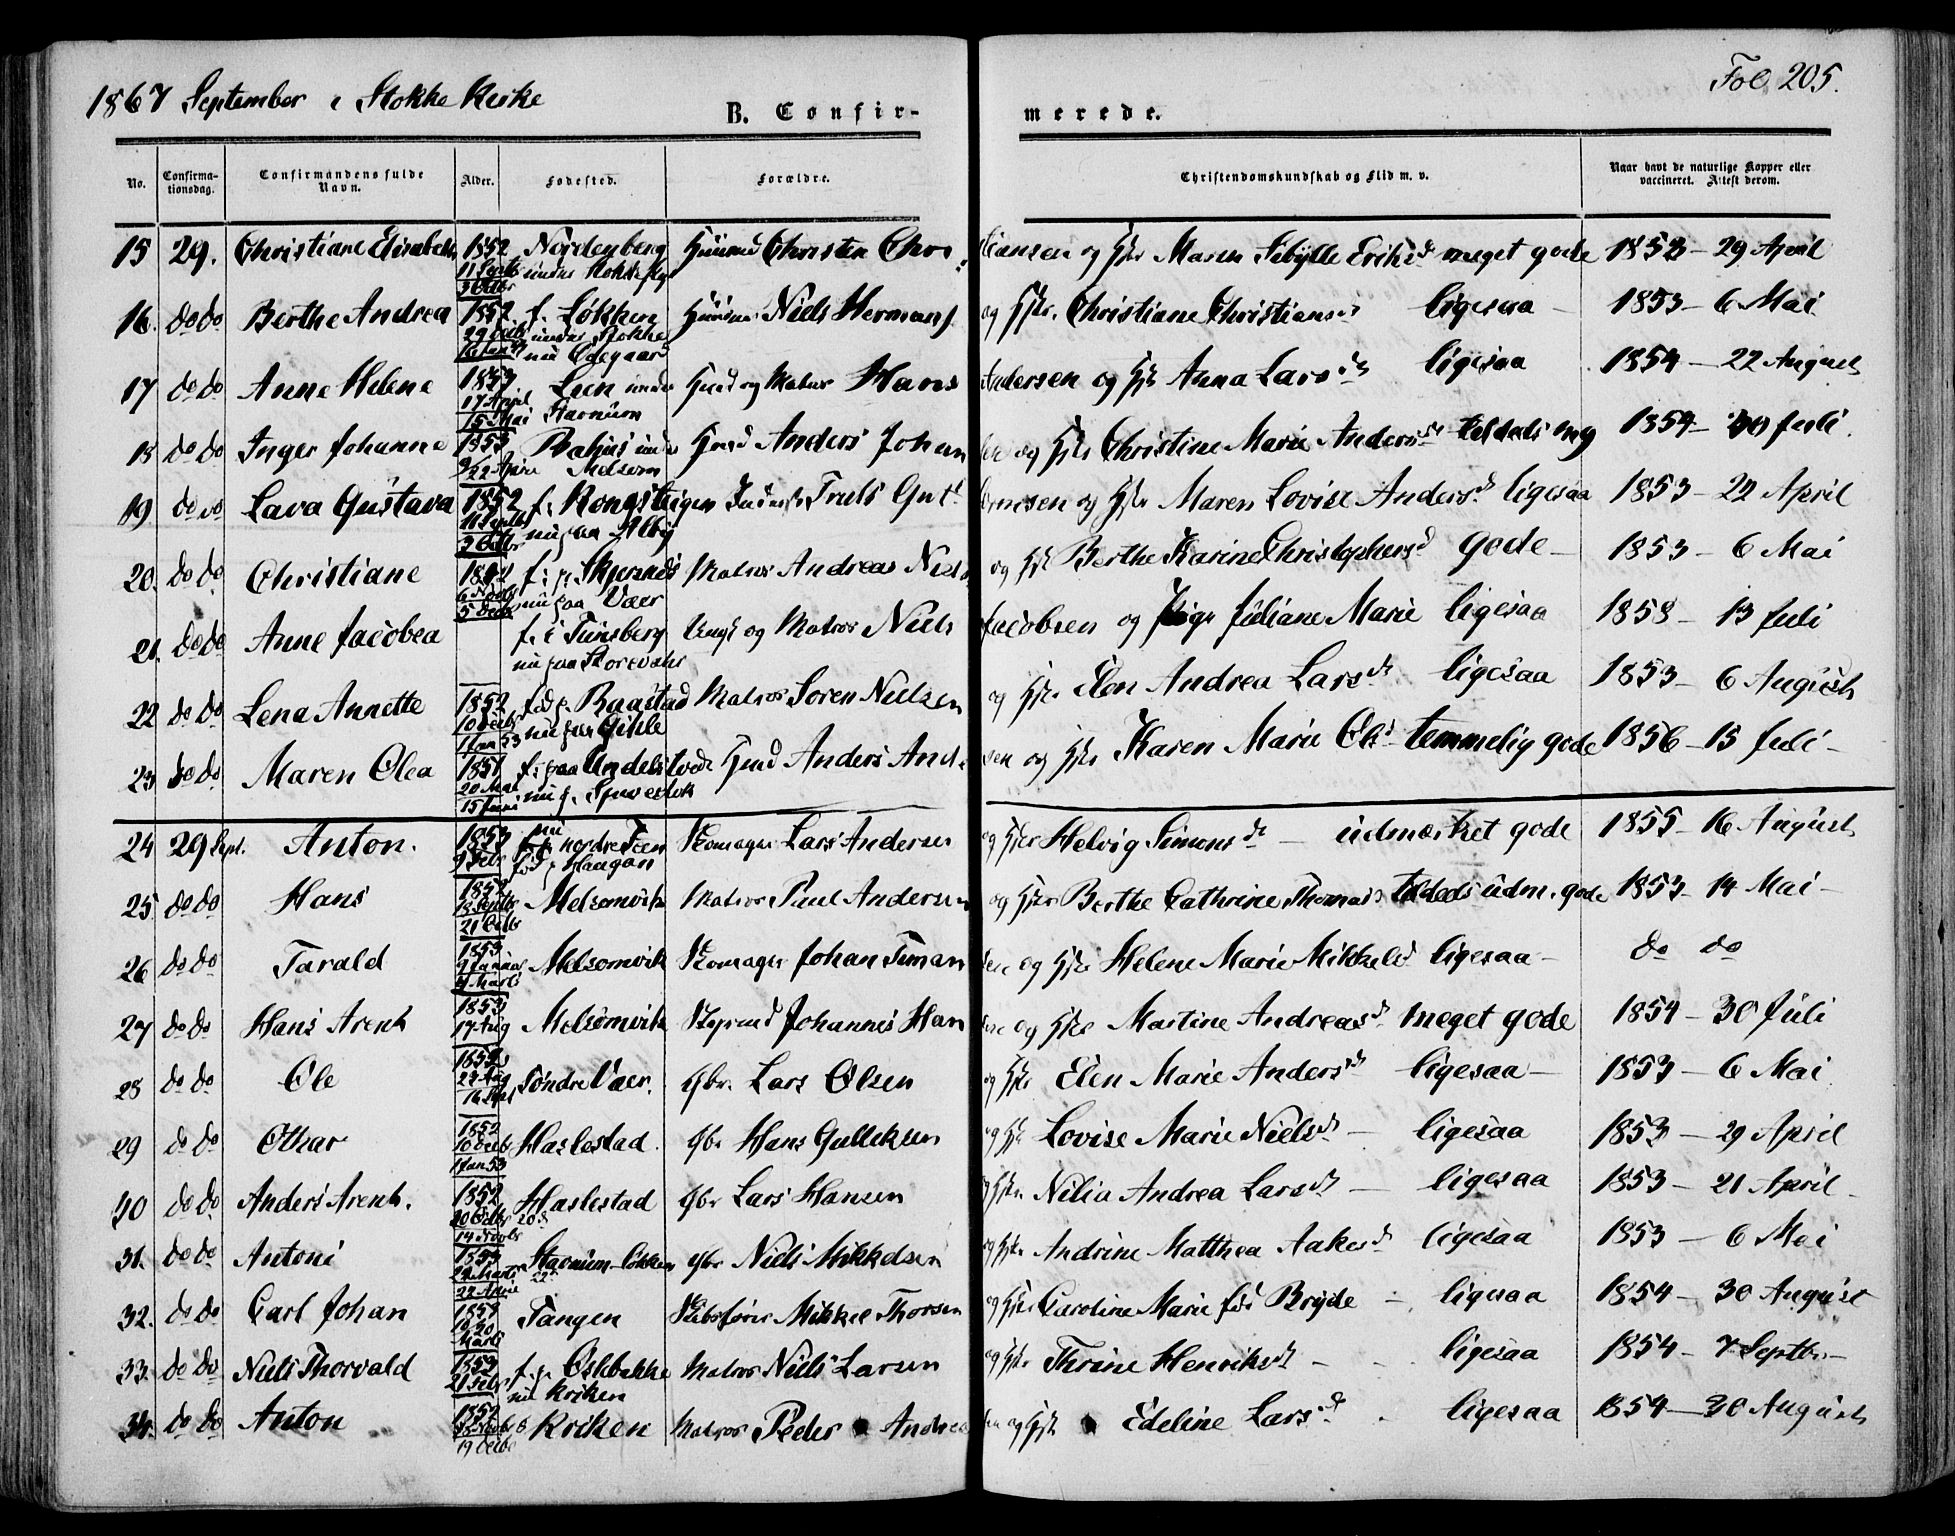 1867 September i Stokke Kirke
Fol. 205.
B. Confirmerede.
No. | Confirmationsdag. | Confirmandens fulde Navn. | Alder. | Fødested. | Forældre. | Christendomskundskab og Flid m. v. | Naar havt de naturlige Kopper eller vaccineret. Attest derom.
15 | 29. | Christiane Elisabeth | 1852 11 Septb 3 Octbr | Nordenberg under Stokke | Huusmd Christen Christiansen og Hstr Maren Sibylle Eriksd | meget gode | 1853 – 29 April
16. | do do | Berthe Andrea | 1852 29 | f. Løkken under Stokke nu Ødegaard | Huusmd Niels Hermans og Hstr. Christiane Christiansd | ligesaa | 1853 – 6 Mai
17 | do do | Anne Helene | 1853 17 April 15 Mai | Lun under Starnum | Huusmd og Matros Hans Andersen og Hstr Anna Larsdtr | ligesaa | 1854 – 22 August
18 | do do | Inger Johanne | 1853 22 April | under Melsom | Huusmd Anders Johansen og Hstr Christine Marie Andersdtr | tildeels mg | 1854 – 30 Juli
19 | do do | Lava Gustava | 1852 11 Septb 3 Octbr | f. Kongsteigen nu paa Alby | Truls Guttormsen og Hstr Maren Lovise Andersd | ligesaa | 1853 – 22 April
20. | do do | Christiane | 1852 6 Novbr 5 Decbr | f. p. Skjersnes nu paa Vaer | Matros Andreas Niels og Hstr Berthe Karine Christophersd | gode | 1853 – 6 Mai
21. | do do | Anne Jacobea | f. i Tunsberg nu paa Storevahr | Ungk og Matros Niels Jacobsen og Pige Juliane Marie | ligesaa | 1858 – 13 Juli
22 | do do | Lena Annette | 1852 10 Decbr 1 Jan 53 | fød p. Raastad nu paa Gihle | Matros Soren Nielsen og Hstr Elen Andrea Larsdtr | ligesaa | 1853 – 6 August
23 | do do | Maren Olea | 1851 20 Mai 15 Juni | f. paa Undelstvedt nu p. | Huusmd Anders Andersen og Hstr Karen Marie Olsd | temmelig gode | 1856 – 15 Juli
24 | 29 Sept. | Anton. | 1853 9 Febr | nu nordre Feen fød p. Haagan | Skomager Lars Andersen og Hstr Helvig Simonsdtr | udmærket gode | 1855 – 16 August
25 | do do | Hans | 1852 Septbr 21 Octbr | Melsomvik | Matros Paul Andersen og Hstr Berthe Cathrine Thomasd | tildeels udm. gode | 1853 – 14 Mai
26 | do do | Tarald | 1853 9 Januar Marts | Melsomvik | Skomager Johan Simansen og Hstr Helene Marie Mikkelsd | ligesaa | do do
27 | do do | Hans Arent | 1853 17 Aug | Melsomvik | Johannes Hansen og Hstr Martine Andreasd | meget gode | 1854 – 30 Juli
28 | do do | Ole | 1852 22 Aug 16 Sept | Søndre Vaer. | Gbr. Lars Olsen og Hstr Elen Marie Andersdtr | ligesaa | 1853 – 6 Mai
29 | do do | Othar | 1852 10 Decbr 1 Jan 53 | Haslestad. | Gbr Hans Gulliksen og Hstr Lovise Marie Nielsdtr | ligesaa | 1853 – 29 April
30 | do do | Anders Arent. | 1852 20 Octbr 14 Novbr | Haslestad | Gbr Lars Hansen og Hstr Nilia Andrea Larsdtr | ligesaa | 1853 – 21 April
31. | do do | Antoni | 1853 22 Marts 22 April | Starnum-Løkken | Gbr Niels Mikkelsen og Hstr Andrine Matthea Aakesdtr | ligesaa | 1853 – 6 Mai
32. | do do | Carl Johan | 1853 Marts | Tangen | Skibsfører Mikkel Thorsen og Hstr Caroline Marie fød Bryde | ligesaa | 1854 – 30 August
33. | do do | Niels Thorvald | 1853 21 Febr | f. p. Oslebakke nu Kriken | Matros Niels Larsen og Hstr Thrine Henriksdtr | ligesaa | 1854 – 7 Septbr
34. | do do | Anton | 1852 19 Octbr | Kriken | Matros Peder Andreasen og Hstr Edeline Larsd | ligesaa | 1854 – 30 August